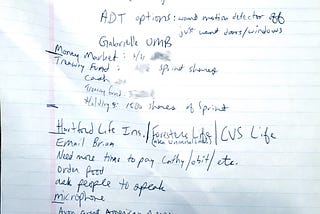 ADT options: want motion detector off
just want doors/windows
Gabrielle UMB
Money Market:
Treasury Fund: Sprint shares
Cash
Treasury fund:
Holdings: 1500 shares of Sprint
Hartford Life Ins./Foresters Life/CVS Life
Email Brian (aka Unimerica)
Need more time to pay Cathy/obit/etc.
order food
ask people to speak
microphone